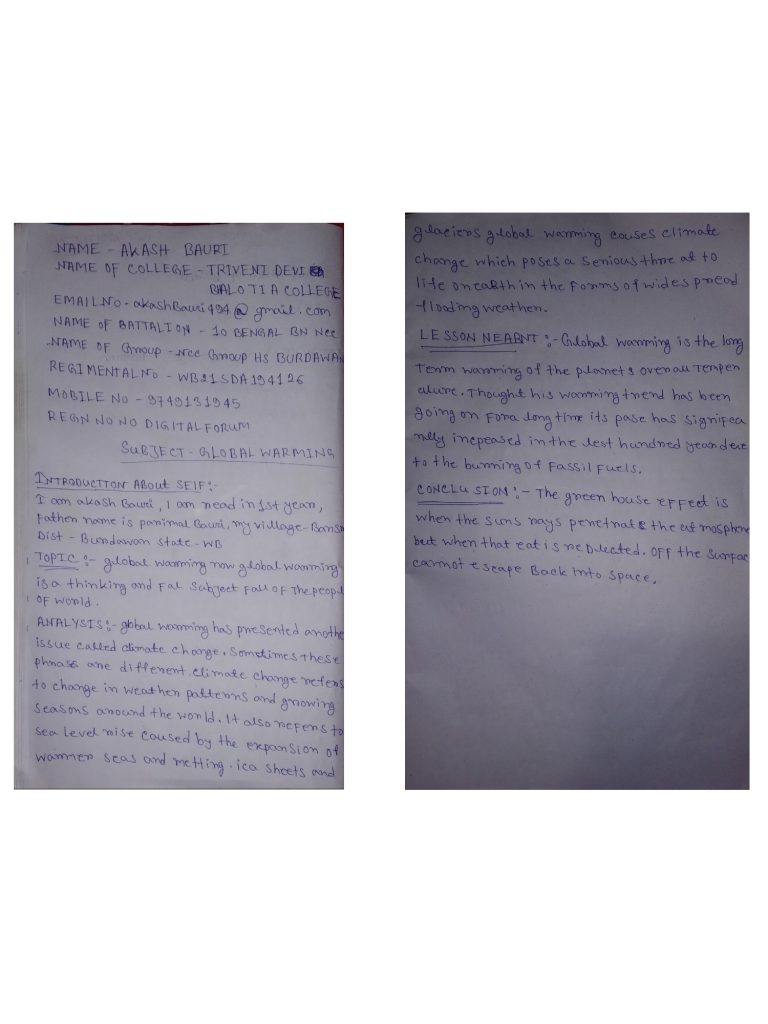 NAME - AKASH BAURI
NAME OF COLLEGE - TRIVENI DEVI
BALOTIA COLLEGE
EMAIL NO - akashBauri494@gmail.com
NAME OF BATTALION - 10 BENGAL BN NCC
NAME OF Group - NCC Group HS BURDAWAN
REGIMENTAL NO - WB21SDA194126
MOBILE NO - 9749131945
REGN NO NO DIGITAL FORUM
SUBJECT - GLOBAL WARMING
INTRODUCTION ABOUT SELF :-
I am akash Bauri, I am read in 1st year,
Father name is parimal Bauri, my village - Bans
Dist - Burdawan State - WB
TOPIC :- global warming now global warming
is a thinking and Fal Subject Fall of The peopl
OF world.
ANALYSIS :- global warming has presented anothe
issue called climate change. Sometimes these
phrases are different climate change refers
to change in weather patterns and growing
seasons around the world. It also refers to
sea level rise caused by the expansion of
warmer seas and metting. ica sheets and
glaciers global warming couses climate
change which poses a serious thre at to
life on earth in the Forms of wides pread
flooding weather.
LESSON NEARNT :- Global warming is the long
Term warming of the planets overall Tempen
ature. Thought his warming trend has been
going on For a long time its pase has signifca
ntly increased in the lest hundred year due
to the burning of Fassil Fuels.
CONCLUSION :- The green house effect is
when the suns rays penetrats the at mosphere
but when that eat is reflected. OFF the surfac
cannot escape Back into space.